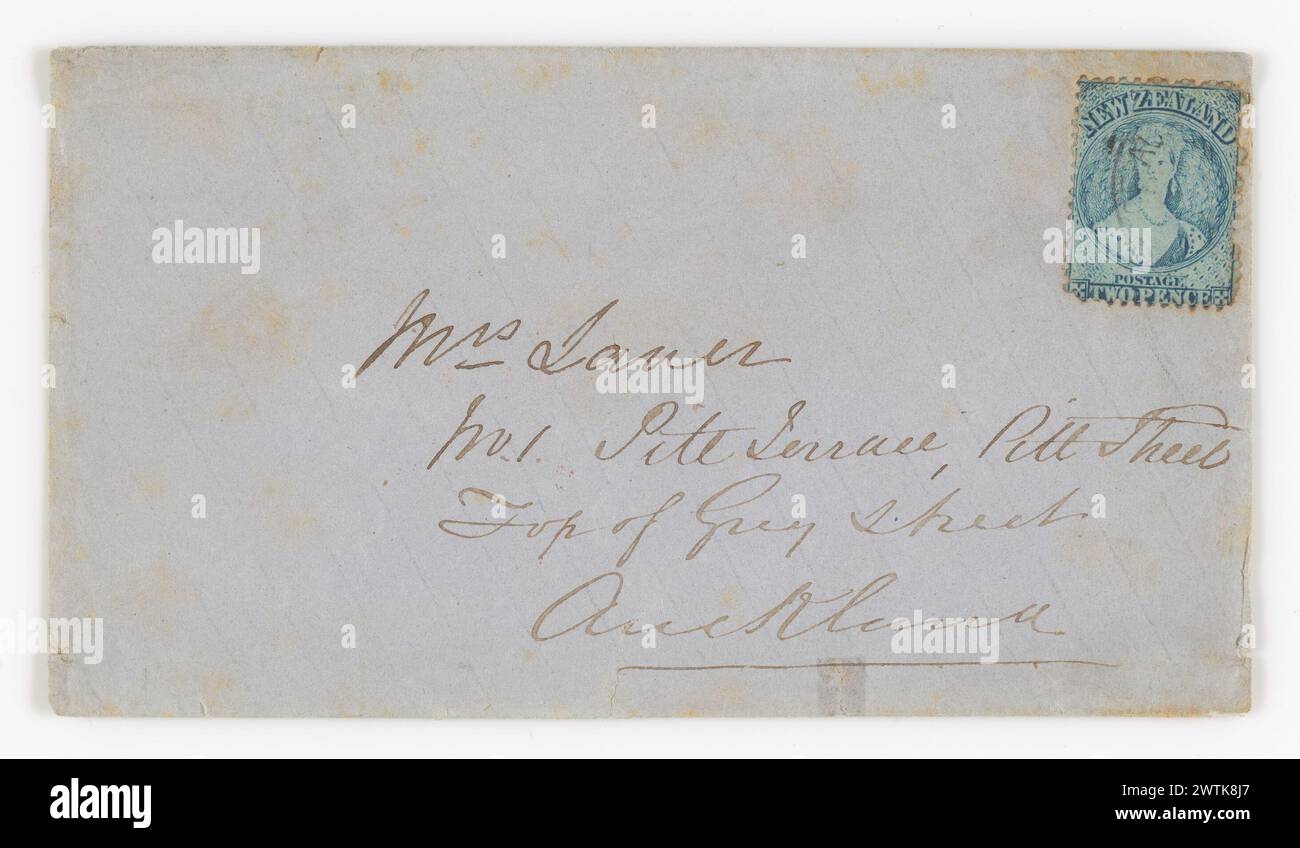 NEW ZEALAND
POSTAGE
TWO PENCE
Mrs
No 1. Pitt Terrace, Pitt Street
Top of Grey Street
Auckland
alamy
alamy
Image ID: 2WTK8J7
www.alamy.com